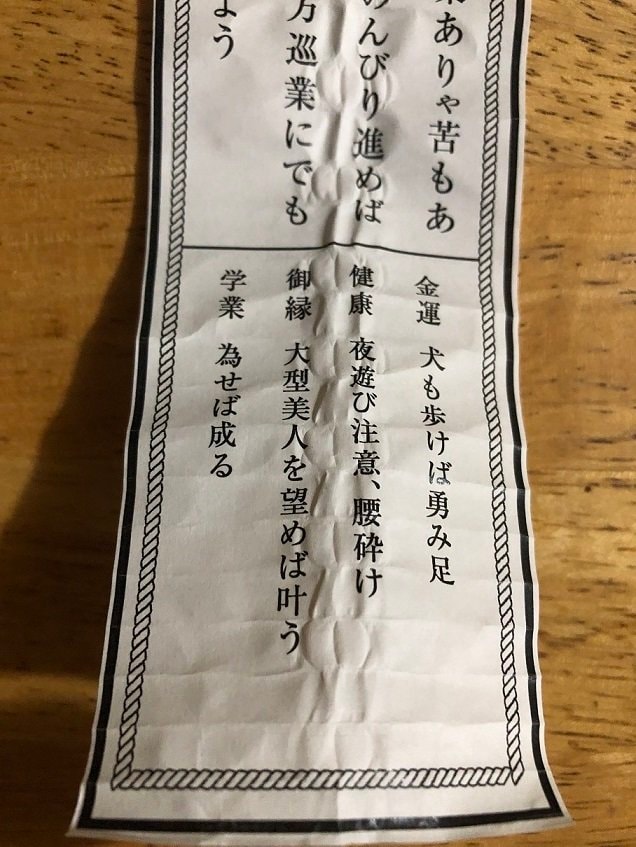 ありゃ苦もあ
んびり進めば
巡業にでも
よう
金運 犬も歩けば勇み足
健康 夜遊び注意、腰砕け
御縁 大型美人を望めば叶う
学業 為せば成る